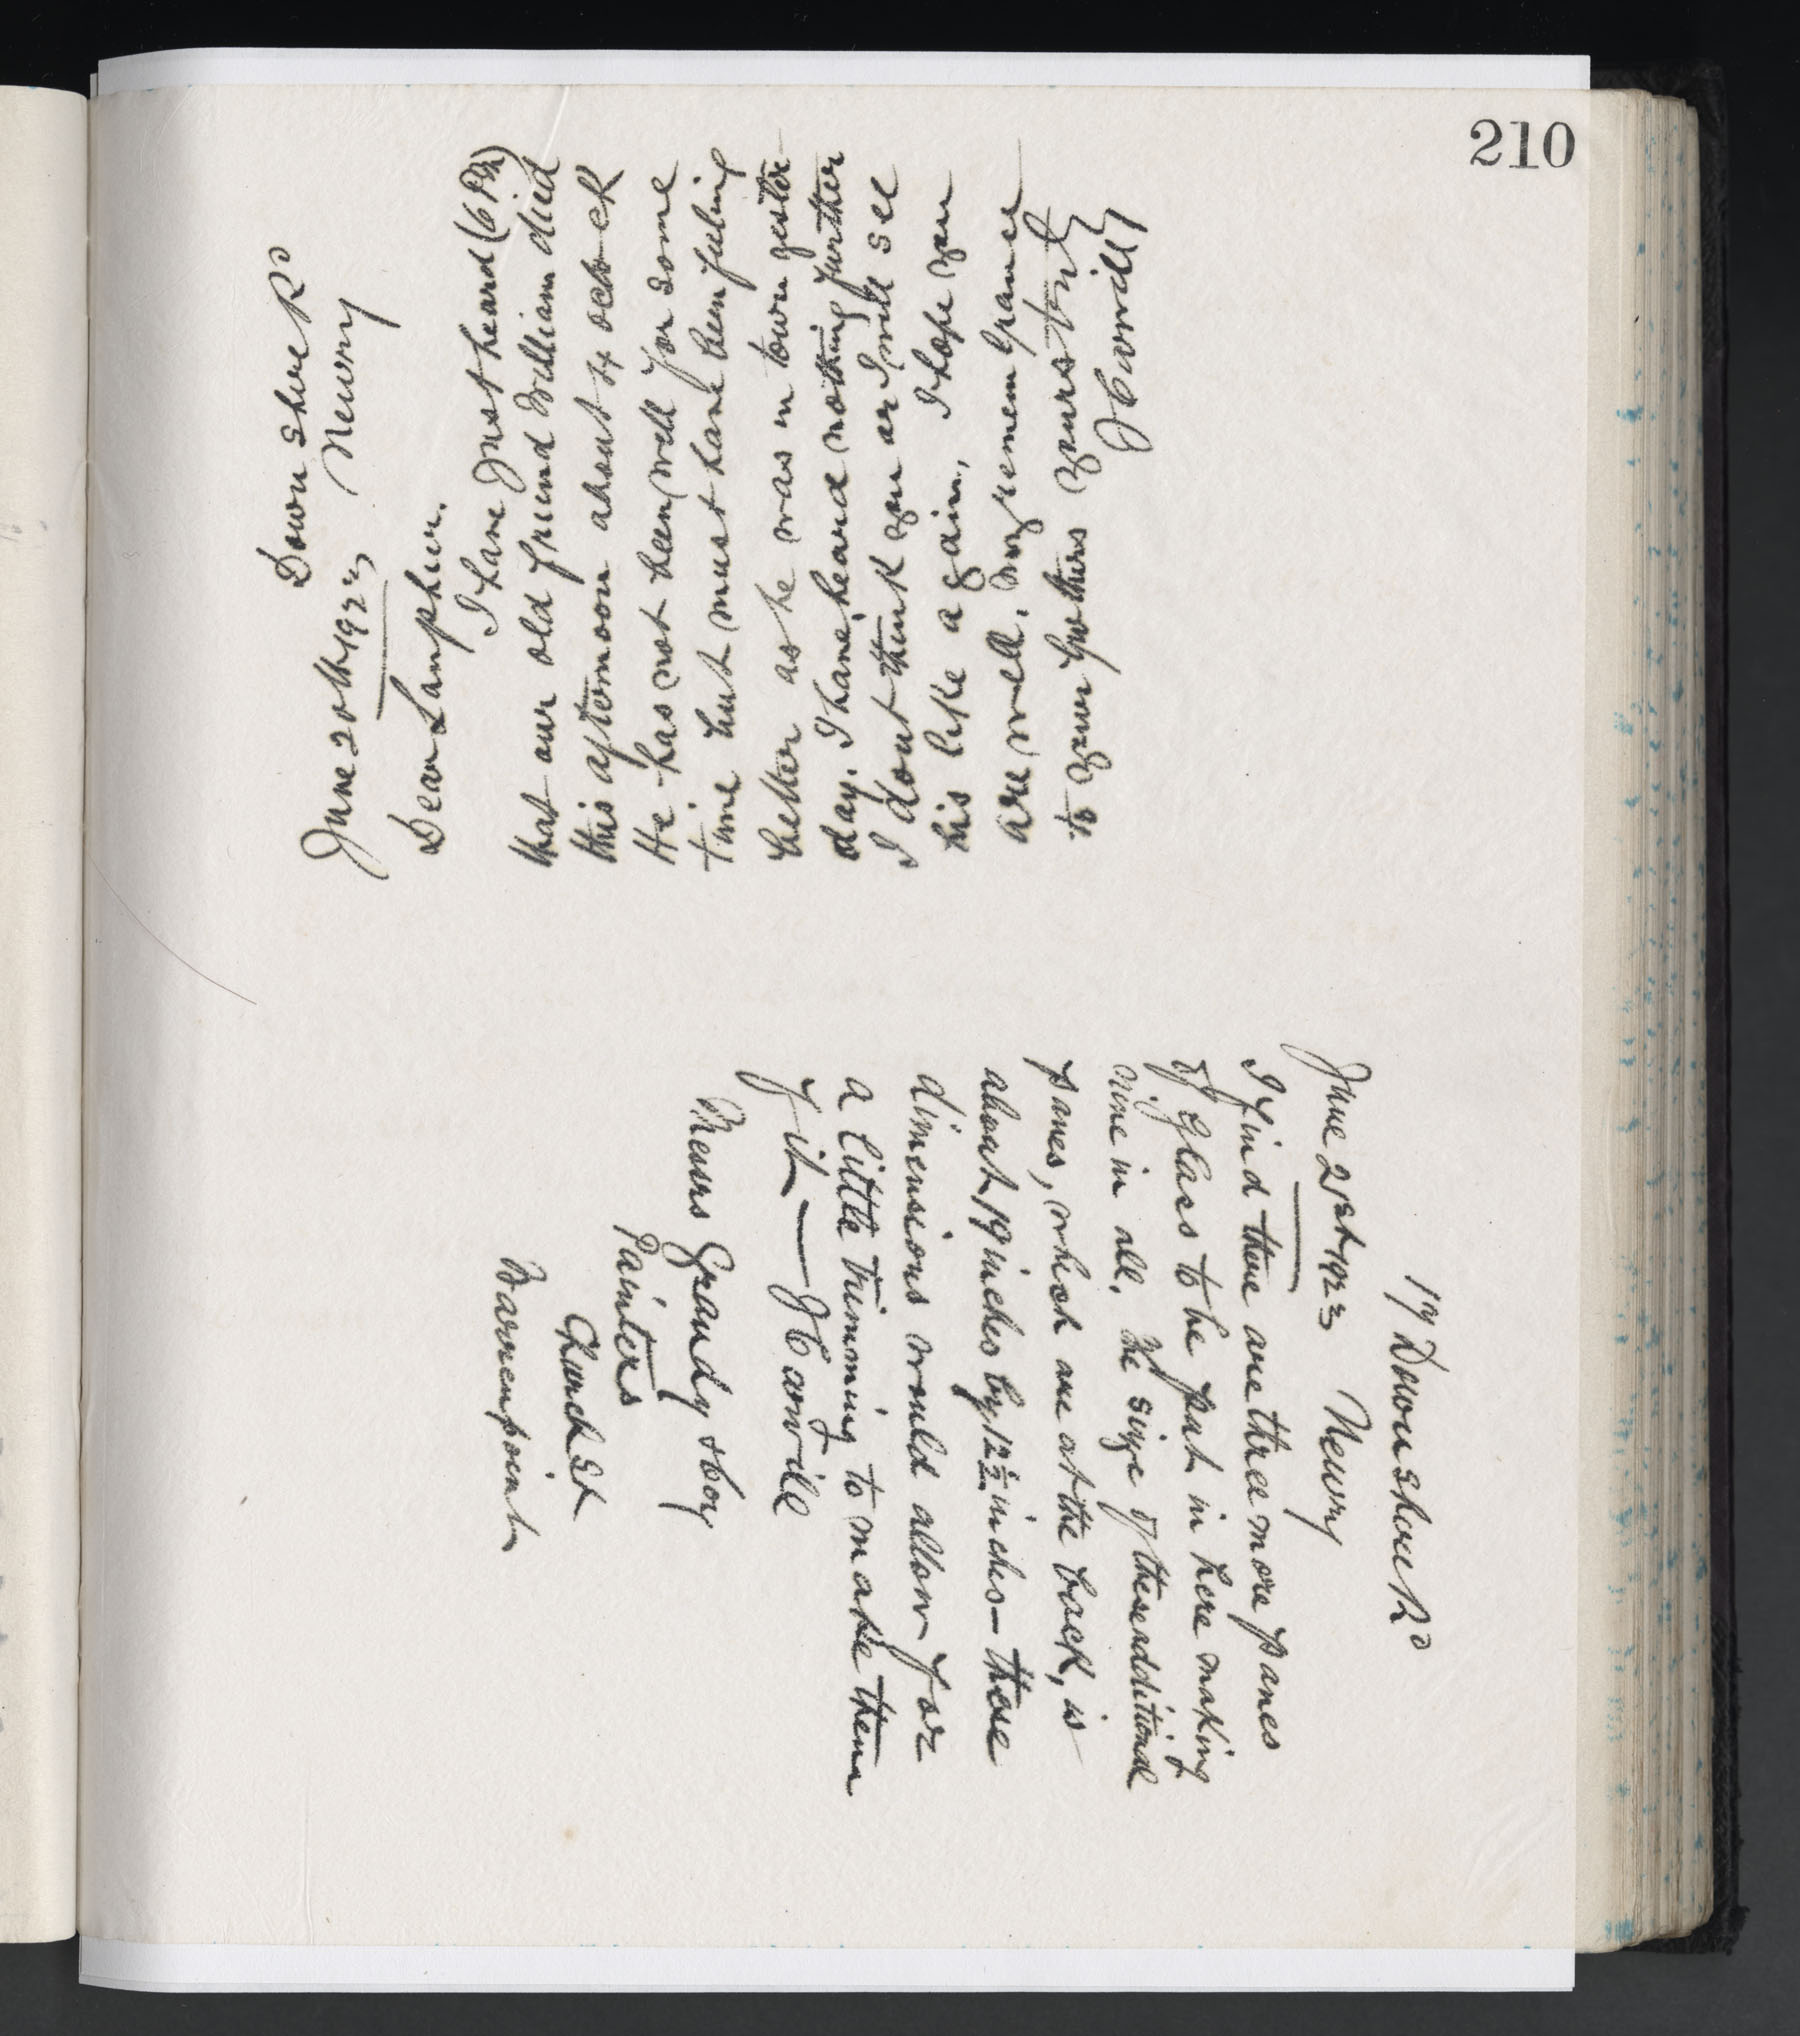 210
Downshire Rd
June 20th 1923 Newry
Dear Lanphier.
I have just heard (6 PM)
that our old friend William died
this afternoon about 4 oclock
He has not been well for some
time but must have been feeling
better as he was in town yester-
day. I have heard nothing further
I dont think you or I will see
his like again. I hope you
are well. My remembrance
to your brothers yours try
17 Downshire Rd
June 21st 1923 Newry
I find there are three more panes
of glass to be put in here making
nine in all. The size of these additional
panes, which are at the back, is
about 19 inches by 12 1/2 inches - those
dimensions would allow for
a little trimming to make them
fit —
Messrs Grandy & Coy
Painters
Church St
Warrenpoint